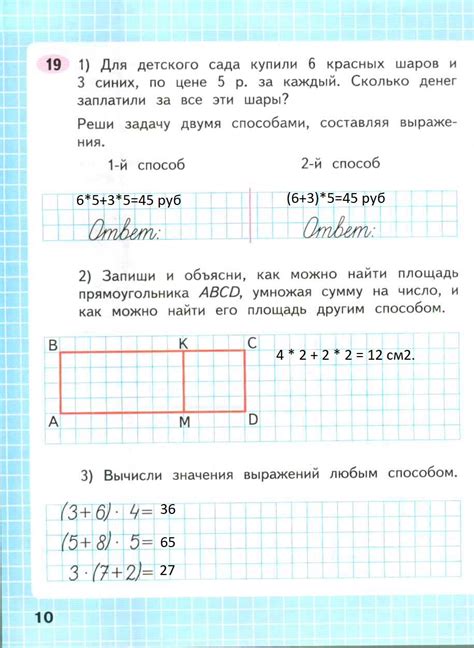 19 1) Для детского сада купили 6 красных шаров и
3 синих, по цене 5 р. за каждый. Сколько денег
заплатили за все эти шары?
Реши задачу двумя способами, составляя выраже-
ния.
1-й способ 2-й способ
6*5+3*5=45 руб (6+3)*5=45 руб
Ответ: Ответ:
2) Запиши и объясни, как можно найти площадь
прямоугольника ABCD, умножая сумму на число, и
как можно найти его площадь другим способом.
B K C
4 * 2 + 2 * 2 = 12 см2.
A M D
3) Вычисли значения выражений любым способом.
(3+6)· 4= 36
(5+8)· 5= 65
3·(7+2)= 27
10